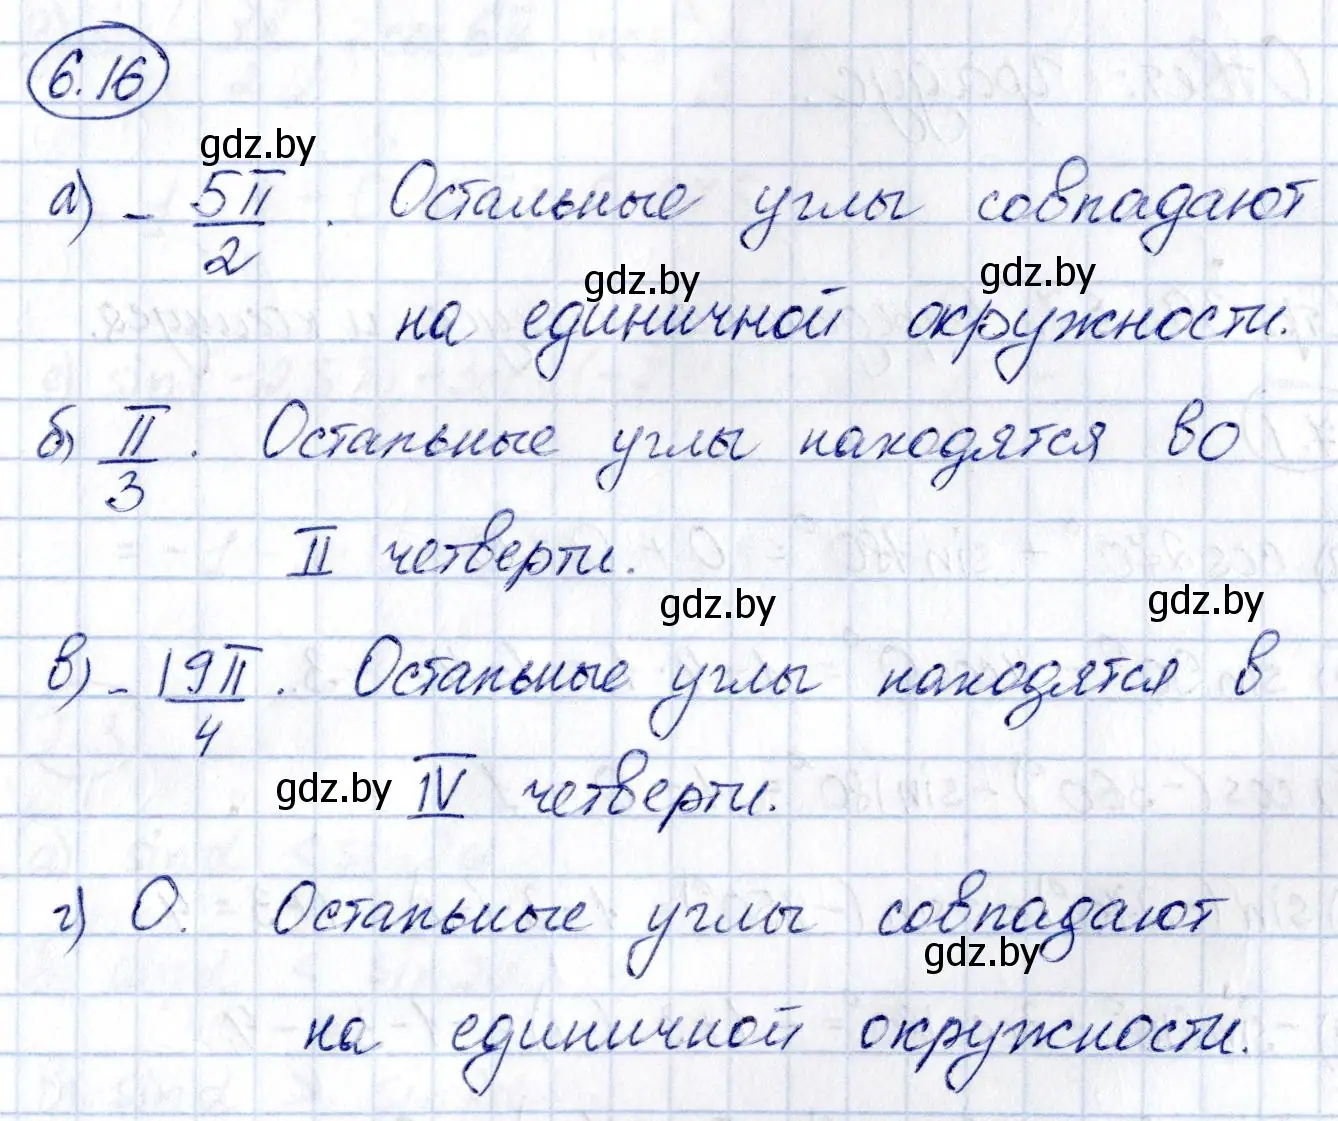 6.16
gdz.by
а) - 5π/2 . Остальные углы совпадают
gdz.by gdz.by
на единичной окружности.
б) π/3 . Остальные углы находятся во
II четверти.
gdz.by gdz.by
в) - 19π/4 . Остальные углы находятся в
gdz.by IV четверти.
г) 0. Остальные углы совпадают
gdz.by
на единичной окружности.